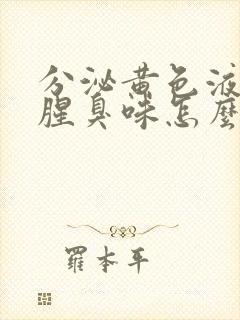 分泌黄色液
腥臭味怎麼
羅本平